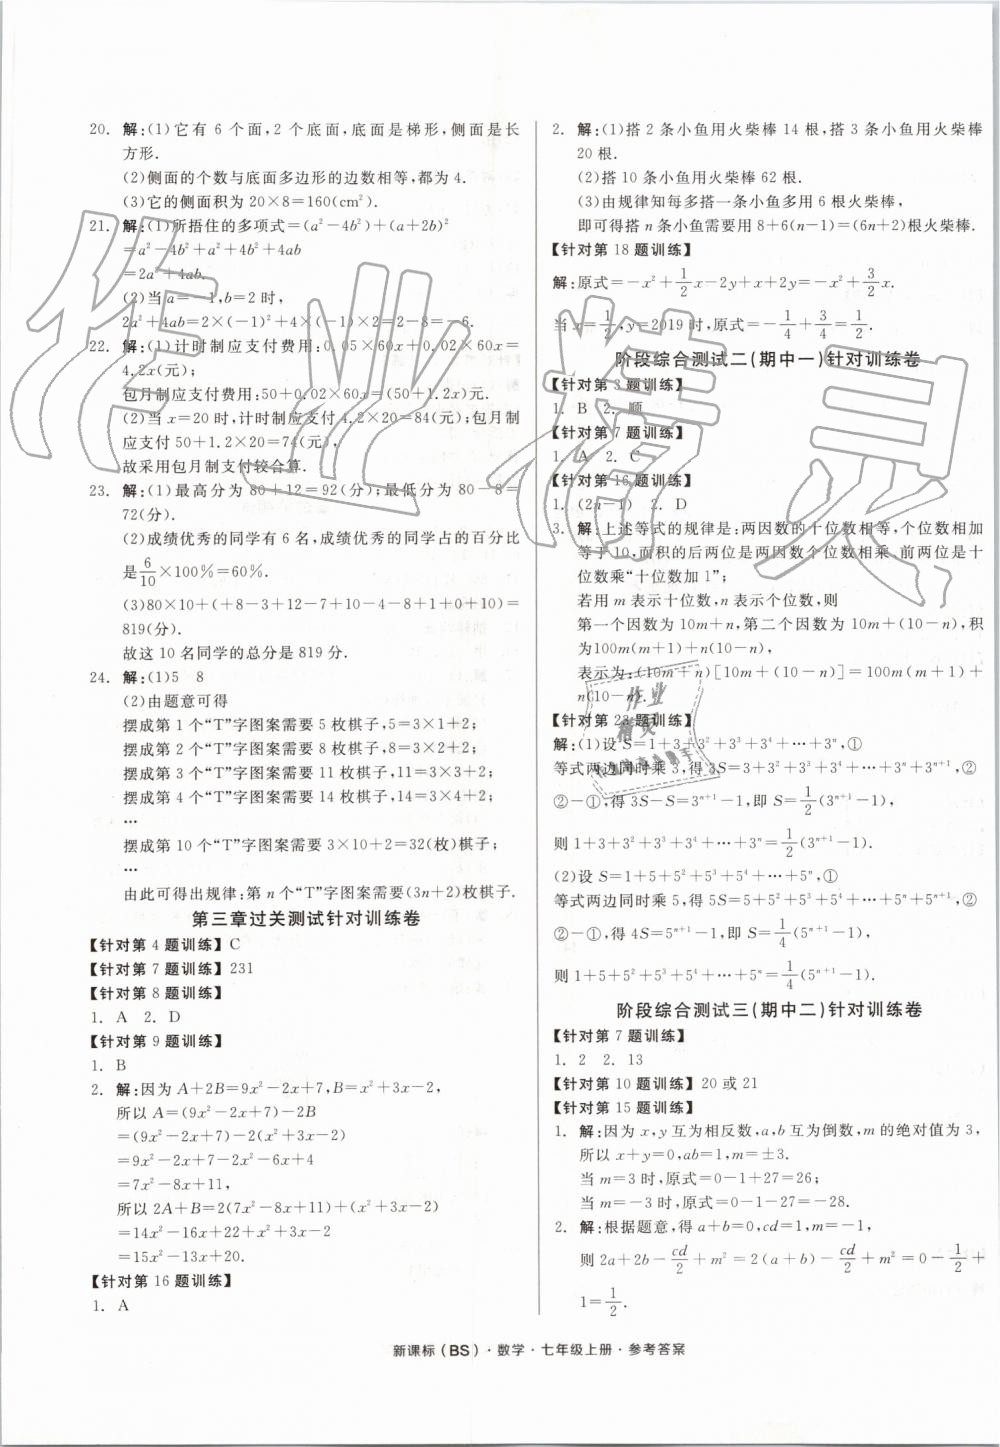 20. 解:(1)它有 6 个面,2 个底面,底面是梯形,侧面是长
方形.
(2)侧面的个数与底面多边形的边数相等,都为 4.
(3)它的侧面积为 20×8=160(cm²).
21. 解:(1)所捂住的多项式=(a²-4b²)+(a+2b)²
=a²-4b²+a²+4b²+4ab
=2a²+4ab.
(2)当 a=-1,b=2 时,
2a²+4ab=2×(-1)²+4×(-1)×2=2-8=-6.
22. 解:(1)计时制应支付费用:0.05×60x+0.02×60x=
4.2x(元);
包月制应支付费用:50+0.02×60x=(50+1.2x)元.
(2)当 x=20 时,计时制应支付 4.2×20=84(元);包月制
应支付 50+1.2×20=74(元),
故采用包月制支付较合算.
23. 解:(1)最高分为 80+12=92(分);最低分为 80-8=
72(分).
(2)成绩优秀的同学有 6 名,成绩优秀的同学占的百分比
是6/10×100%=60%.
(3)80×10+(+8-3+12-7+10-4-8+1+0+10)=
819(分).
故这 10 名同学的总分是 819 分.
24. 解:(1)5 8
(2)由题意可得
摆成第 1 个“T”字图案需要 5 枚棋子,5=3×1+2;
摆成第 2 个“T”字图案需要 8 枚棋子,8=3×2+2;
摆成第 3 个“T”字图案需要 11 枚棋子,11=3×3+2;
摆成第 4 个“T”字图案需要 14 枚棋子,14=3×4+2;
…
摆成第 10 个“T”字图案需要 3×10+2=32(枚)棋子;
…
由此可得出规律:第 n 个“T”字图案需要(3n+2)枚棋子.
第三章过关测试针对训练卷
【针对第 4 题训练】C
【针对第 7 题训练】231
【针对第 8 题训练】
1. A 2. D
【针对第 9 题训练】
1. B
2. 解:因为 A+2B=9x²-2x+7,B=x²+3x-2,
所以 A=(9x²-2x+7)-2B
=(9x²-2x+7)-2(x²+3x-2)
=9x²-2x+7-2x²-6x+4
=7x²-8x+11,
所以 2A+B=2(7x²-8x+11)+(x²+3x-2)
=14x²-16x+22+x²+3x-2
=15x²-13x+20.
【针对第 16 题训练】
1. A
2. 解:(1)搭 2 条小鱼用火柴棒 14 根,搭 3 条小鱼用火柴棒
20 根.
(2)搭 10 条小鱼用火柴棒 62 根.
(3)由规律知每多搭一条小鱼多用 6 根火柴棒,
即可得搭 n 条小鱼需要用 8+6(n-1)=(6n+2)根火柴棒.
【针对第 18 题训练】
解:原式=-x²+1/2x-2y+x+2y=-x²+3/2x.
当 x=1/2,y=2019 时,原式=-1/4+3/4=1/2.
阶段综合测试二(期中一)针对训练卷
【针对第 3 题训练】
1. B 2. 顺
【针对第 7 题训练】
1. A 2. C
【针对第 16 题训练】
1. (2n-1) 2. D
3. 解:上述等式的规律是:两因数的十位数相等,个位数相加
等于 10,而积的后两位是两因数个位数相乘,前两位是十
位数乘“十位数加 1”;
若用 m 表示十位数,n 表示个位数,则
第一个因数为 10m+n,第二个因数为 10m+(10-n),积
为100m(m+1)+n(10-n),
表示为:(10m+n)[10m+(10-n)]=100m(m+1)+
n(10-n).
【针对第 23 题训练】
解:(1)设 S=1+3+3²+3³+3⁴+…+3ⁿ,①
等式两边同时乘 3,得 3S=3+3²+3³+3⁴+…+3ⁿ⁺¹,②
②-①,得 3S-S=3ⁿ⁺¹-1,即 S=1/2(3ⁿ⁺¹-1),
则 1+3+3²+3³+3⁴+…+3ⁿ=1/2(3ⁿ⁺¹-1).
(2)设 S=1+5+5²+5³+5⁴+…+5ⁿ,①
等式两边同时乘 5,得 5S=5+5²+5³+5⁴+…+5ⁿ+5ⁿ⁺¹,②
②-①,得 4S=5ⁿ⁺¹-1,即 S=1/4(5ⁿ⁺¹-1),
则 1+5+5²+5³+5⁴+…+5ⁿ=1/4(5ⁿ⁺¹-1).
阶段综合测试三(期中二)针对训练卷
【针对第 7 题训练】
1. 2 2. 13
【针对第 10 题训练】20 或 21
【针对第 15 题训练】
1. 解:因为 x,y 互为相反数,a,b 互为倒数,m 的绝对值为 3,
所以 x+y=0,ab=1,m=±3.
当 m=3 时,原式=0-1+27=26;
当 m=-3 时,原式=0-1-27=-28.
2. 解:根据题意,得 a+b=0,cd=1,m=-1,
则 2a+2b-cd/2+m²=2(a+b)-cd/2+m²=0-1/2+
1=1/2.
新课标(BS)·数学·七年级上册·参考答案
作业精灵